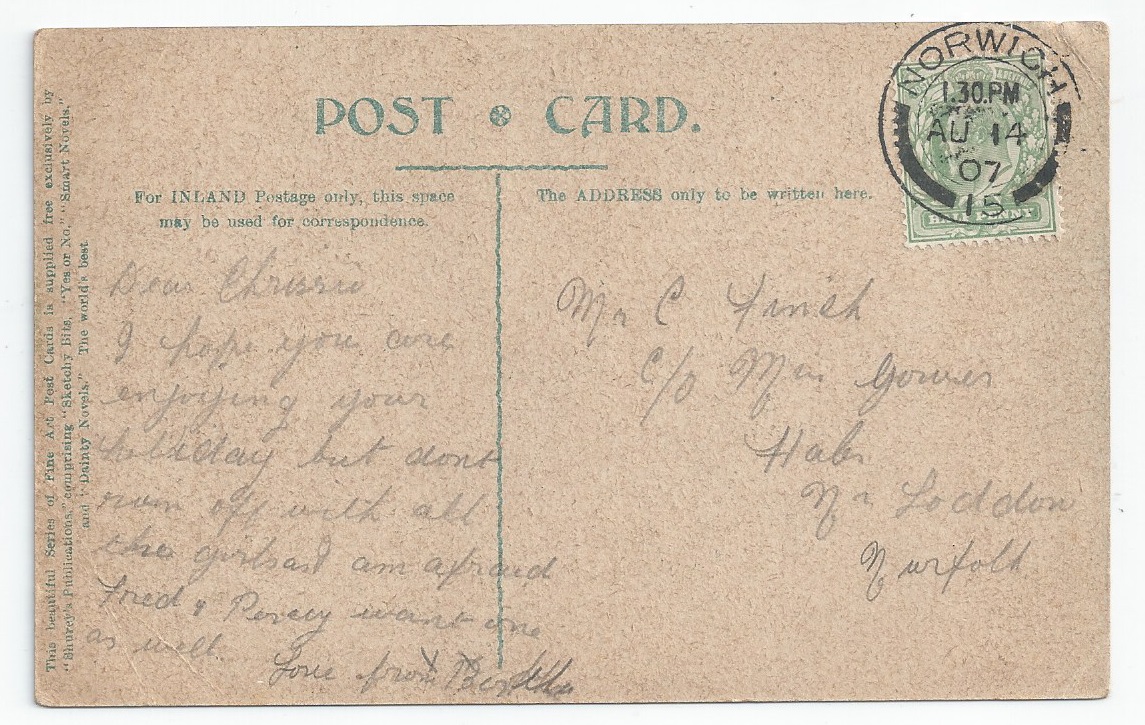 POST CARD.
For INLAND Postage only, this space
may be used for correspondence.
The ADDRESS only to be written here.
This beautiful Series of Fine Art Post Cards is supplied free exclusively by
"Shurey's Publications," comprising "Sketchy Bits," "Yes or No," "Smart Novels,"
and "Dainty Novels." The world's best
NORWICH
1.30.PM
AU 14
07
15
HALFPENNY
Dear Chrissie
I hope you are
enjoying your
holiday but dont
run off with all
the girls as I am afraid
Fred & Percy want one
as well.
Love from Bertha
Mr C Finch
C/o Mrs Gower
Hales
Nr Loddon
Norfolk